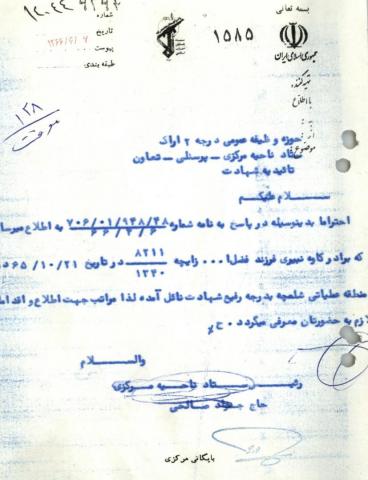 بسمه تعالی
شماره
تاریخ ۱۳۶۶/۶/۷
پیوست
طبقه بندی
۱۵۸۵
جمهوری اسلامی ایران
تهیه کننده
با اطلاع
موضوع
۱۲۸
موقت
حوزه و ظیفه عمومی درجه ۲ اراک
ستاد ناحیه مرکزی - پرسنلی - تعاون
تائیدیه شهادت
سلام علیکم
احتراما بدینوسیله در پاسخ به نامه شماره ۷۰۶/۰۱/۹۴۸/۴۸ به اطلاع میرساند
۶۶/۴/۶
که برادر کاوه نبیری فرزند فضل ا... زاییچه ۸۲۱۱ در تاریخ ۶۵/۱۰/۲۱ د
۱۳۴۰
منطقه عملیاتی شلمچه بدرجه رفیع شهادت نائل آمده لذا مراتب جهت اطلاع و اقدام
لازم به حضورتان معرفی میگردد
والسلام
رئیس ستاد ناحیه مرکزی
حاج جواد صالحی
بایگانی مرکزی